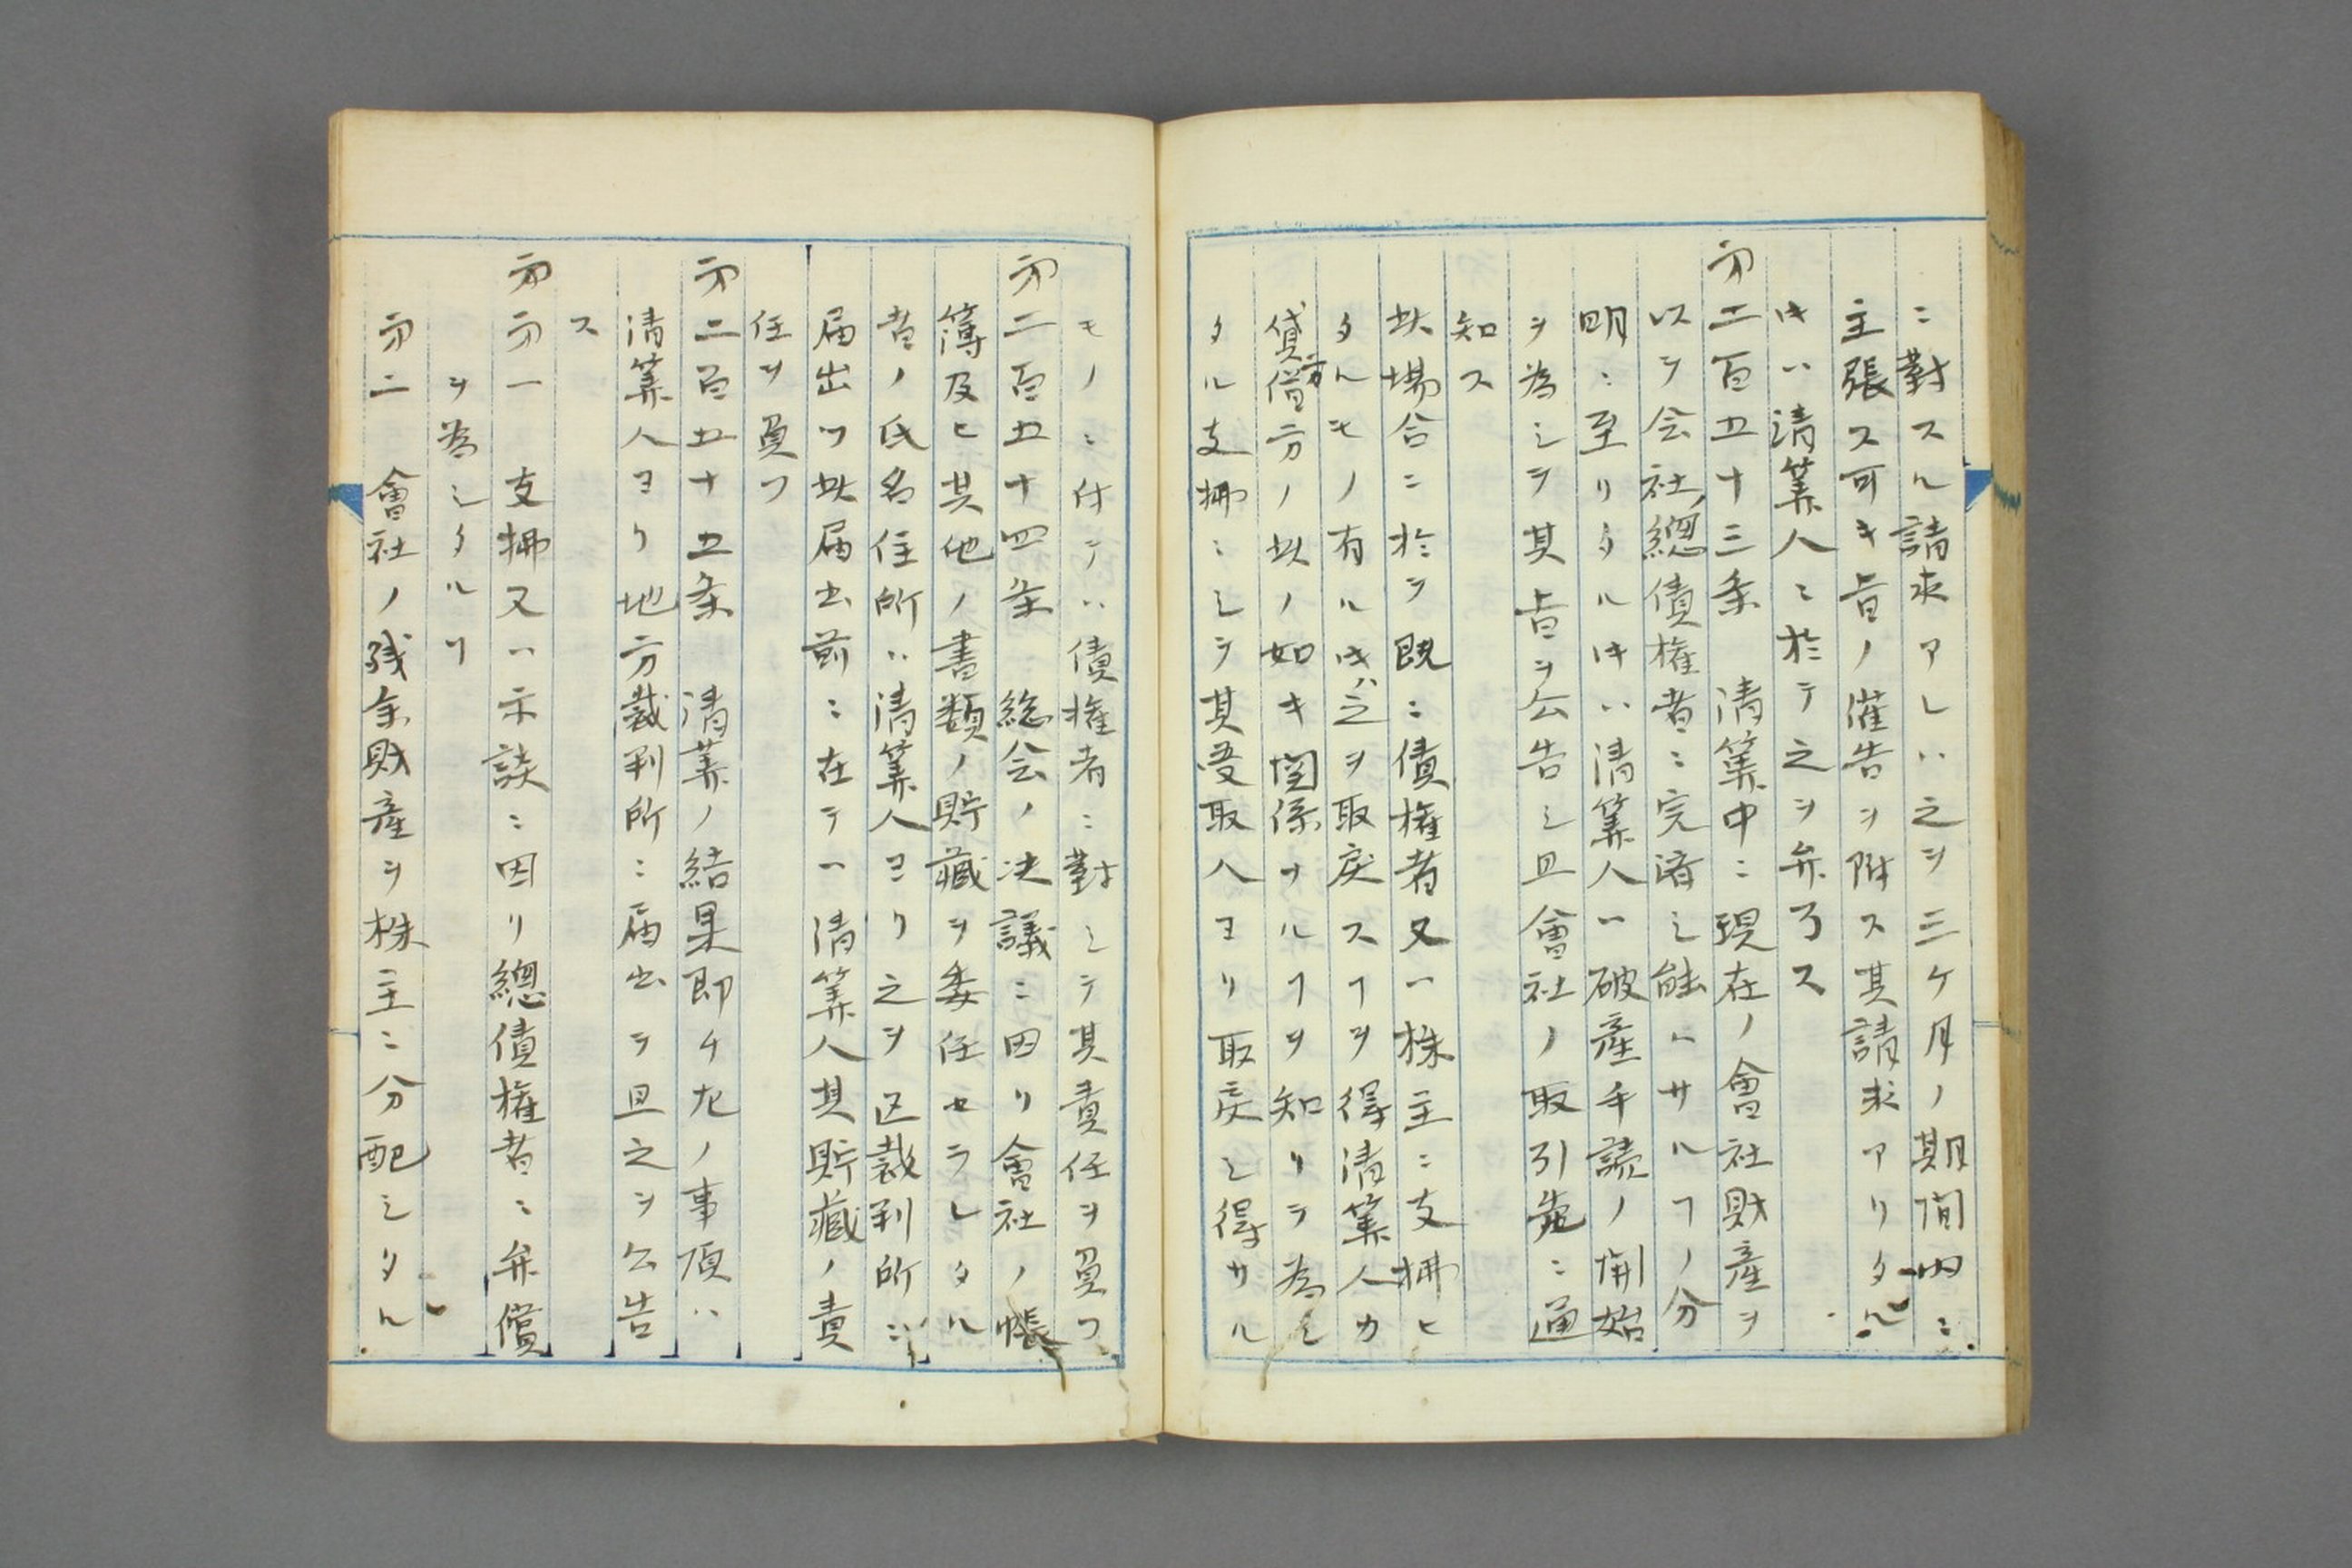 ニ對スル請求アレハ之ヲ三ケ月ノ期間内ニ
主張ス可キ旨ノ催告ヲ附ス其請求アリタル
𪜈ハ清算人ニ於テ之ヲ弁了ス
第二百五十三条　清算中ニ現在ノ會社財産ヲ
以テ会社総債権者ニ完済シ能ハサルヿノ分
明ニ至リタル𪜈ハ清算人ハ破産手続ノ開始
ヲ為シテ其旨ヲ公告シ且會社ノ取引先ニ通
知ス
此場合ニ於テ既ニ債権者又ハ株主ニ支拂ヒ
タルモノ有ル𪜈ハ之ヲ取戻スヿヲ得清算人カ
貸方借方ノ此ノ如キ関係ナルヿヲ知リテ為シ
タル支拂ニシテ其受取人ヨリ取戻シ得サル
モノニ付テハ債権者ニ對シテ其責任ヲ負フ
第二百五十四条　総会ノ决議ニ因リ會社ノ帳
簿及ヒ其他ノ書類ノ貯蔵ヲ委任セラレタル
者ノ氏名住所ハ清算人ヨリ之ヲ区裁判所ニ
届出ツ此届出前ニ在テハ清算人其貯蔵ノ責
任ヲ負フ
第二百五十五条　清算ノ結果即チ左ノ事項ハ
清算人ヨリ地方裁判所ニ届出テ且之ヲ公告
ス
第一　支拂又ハ示談ニ因リ總債権者ニ弁償
ヲ為シタルヿ
第二　會社ノ残余財産ヲ株主ニ分配シタル